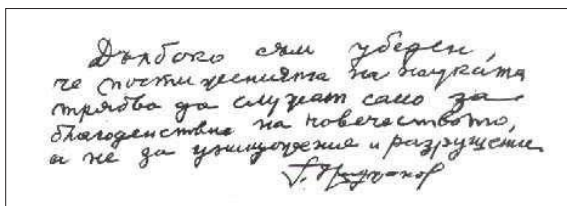 Дълбоко съм убеден,
че постиженията на науката
трябва да служат само за
благоденствие на човечеството,
а не за унищожение и разрушение